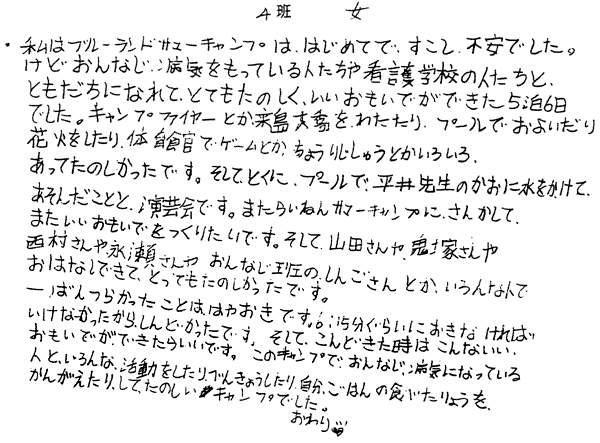 A班 女
・私はブルーランドサマーキャンプは、はじめてで、すこし不安でした。
けどおんなじ病気をもっている人たちや看護学校の人たちと、
ともだちになれて、とてもたのしく、いいおもいでができた5泊6日
でした。キャンプファイヤーとか来島大橋を、わたたり、プールでおよいだり
花火をしたり、体育館でゲームとか、ちょうりじしゅうとかいろいろ、
あってたのしかったです。そしてとくに、プールで平井先生のかおに水をかけて、
あそんだことと、演芸会です。またらいねんサマーキャンプに、さんかして、
またいいおもいでをつくりたいです。そして、山田さんや、鬼塚さんや
西村さんや永瀬さんや おんなじ班の、しんごさん とか、いろんな人で
おはなしできて、とってもたのしかったです。
一ばんつらかったことは、はやおきです。6:15分ぐらいにおきな ければ
いけなかったから、しんどかったです。そして、こんどきた時は こんないい、
おもいでができたらいいです。このキャンプで、おんなじ病気になっている
人と、いろんな、活動をしたり、べんきょうしたり、自分、ごはんの食べたりょうを、
かんがえたり、して、たのしいキャンプでした。
おわり